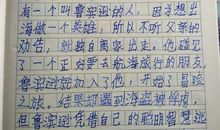 有一个叫鲁宾逊的人，因为想出
海做一个英雄，所以不听父亲的
劝告，就独自离家出走。他碰见
了一个正好要去航海旅行的朋友
鲁宾逊就加入了他，开始了冒险
之旅。结果却遇到海盗被俘虏，
但鲁宾逊凭借自己的聪明智慧逃